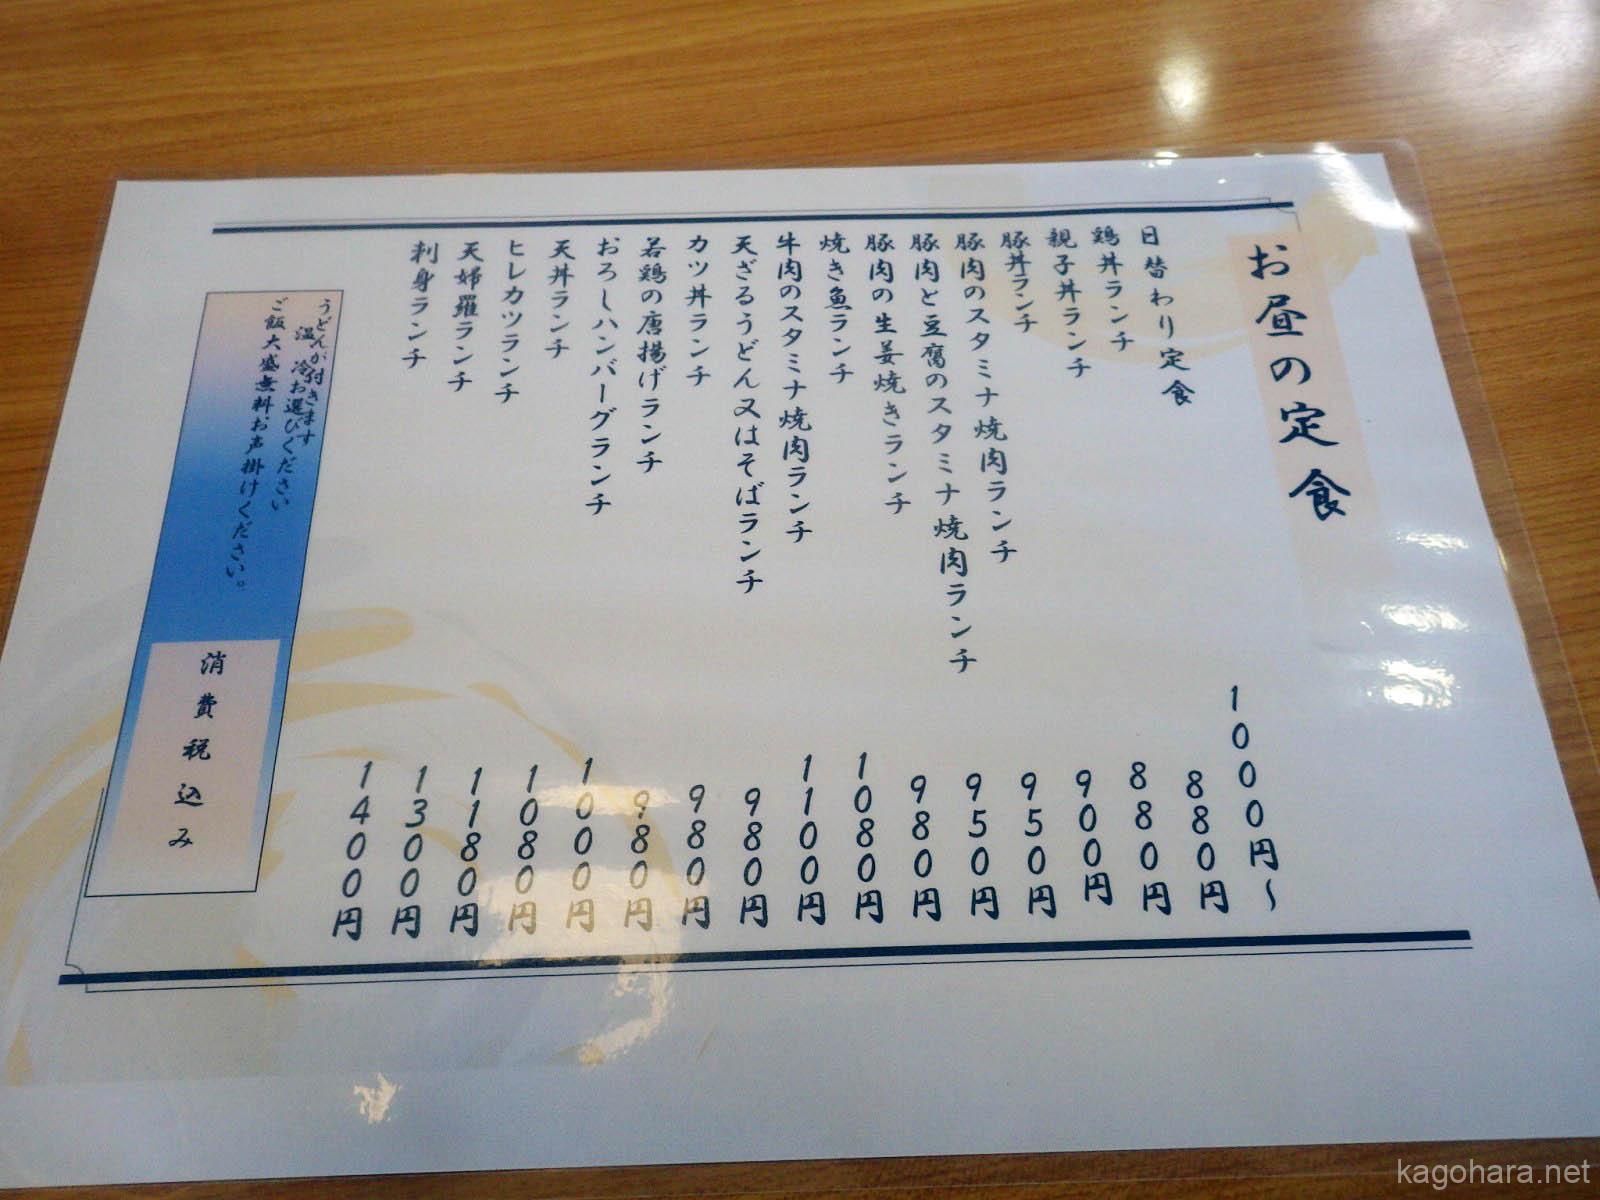 お昼の定食
日替わり定食 1000円～
鶏丼ランチ 880円
親子丼ランチ 880円
豚丼ランチ 900円
豚肉のスタミナ焼肉ランチ 950円
豚肉と豆腐のスタミナ焼肉ランチ 950円
豚肉の生姜焼きランチ 980円
焼き魚ランチ 1080円
牛肉のスタミナ焼肉ランチ 1100円
天ざるうどん又はそばランチ 980円
カツ丼ランチ 980円
若鶏の唐揚げランチ 980円
おろしハンバーグランチ 1000円
天丼ランチ 1080円
ヒレカツランチ 1180円
天婦羅ランチ 1300円
刺身ランチ 1400円
うどんが付きます
温 冷お選びください
ご飯大盛無料お声掛けください。
消費税込み
kagohara.net